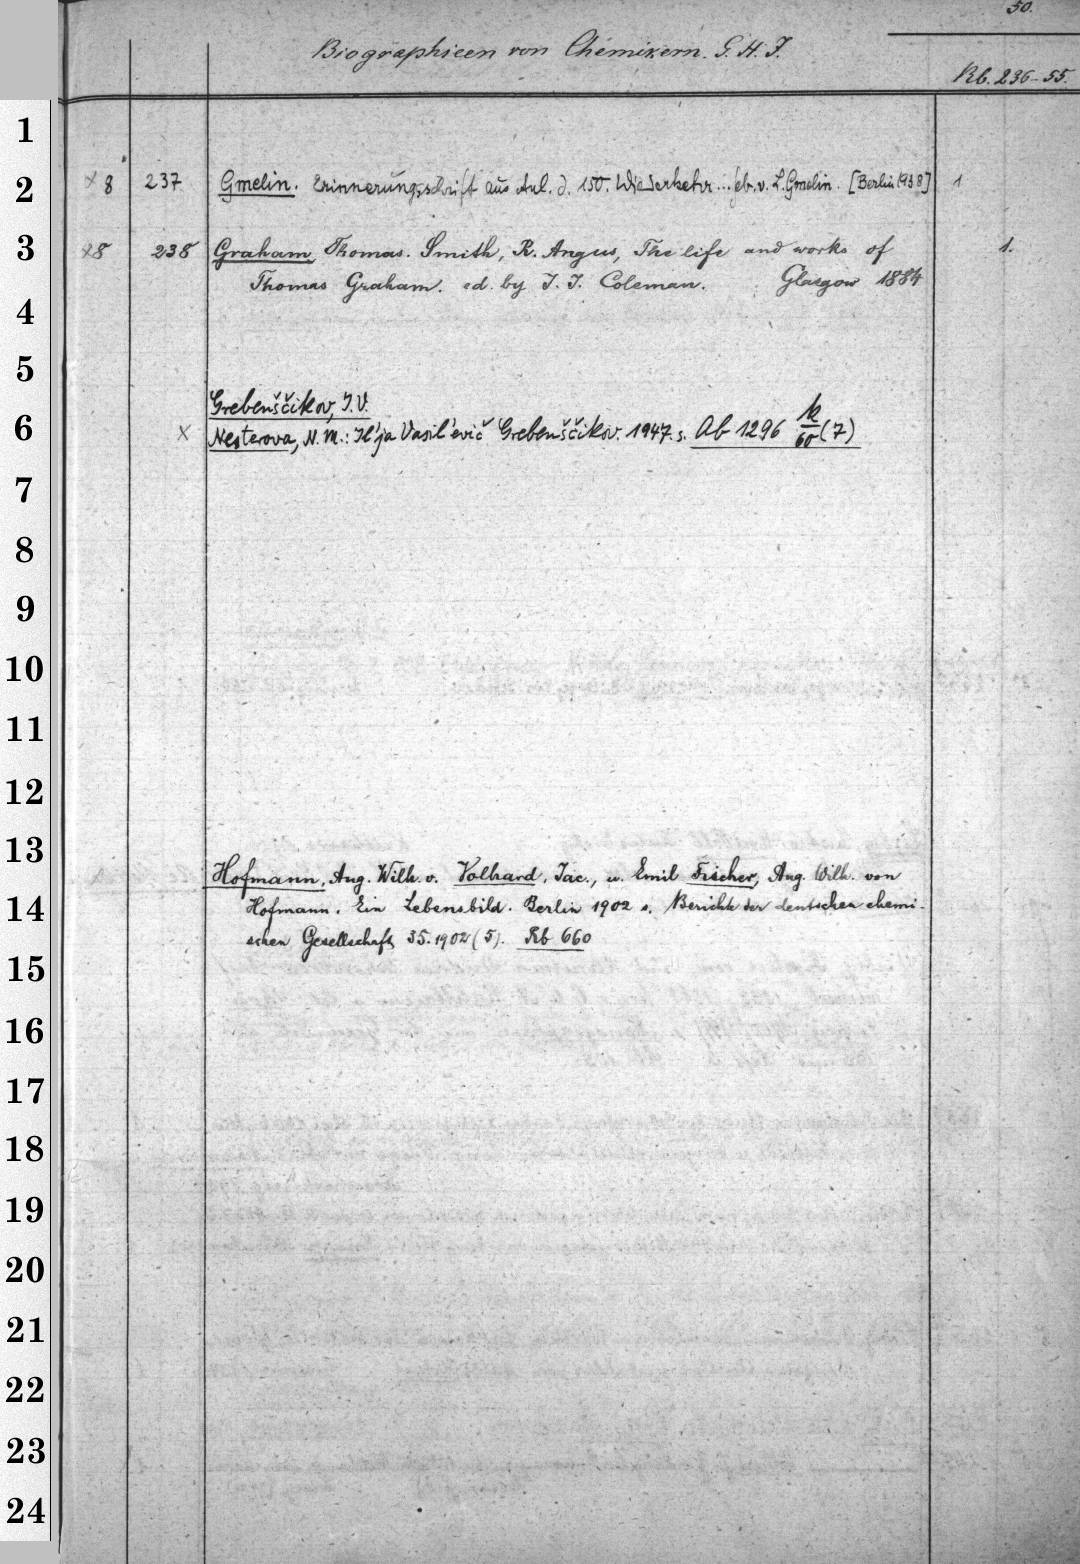 50.
Biographieen von Chemikern. G. H. J.
Rb. 236-55.
1
2
×8 237 Gmelin. Erinnerungsschrift aus Anl. d. 150. Wiederkehr... Geb. v. L. Gmelin. [Berlin 1938] 1
3
×8 238 Graham, Thomas. Smith, R. Angus, The life and works of 1.
Thomas Graham. ed. by J. J. Coleman. Glasgow 1884
4
5
Grebenščikov, I.V.
6
× Nesterova, N. M.: Il'ja Vasil'evič Grebenščikov. 1947. s. Ab 1296 k/60 (7)
7
8
9
10
11
12
13
Hofmann, Aug. Wilh. v. Volhard, Jac., u. Emil Fischer, Aug. Wilh. von
14
Hofmann. Ein Lebensbild. Berlin 1902 s. Berichte der deutschen chemi-
schen Gesellschaft 35. 1902 (5). Rb 660
15
16
17
18
19
20
21
22
23
24